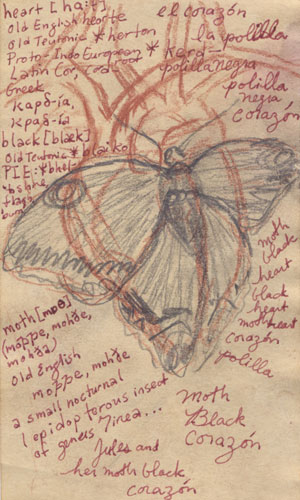 heart [ha:t]
Old English heorte
Old Teutonic *herton
Proto-Indo European *kerd-
Latin Cor, Cord
Greek
καρδ-ία,
κραδ-ία
black [blæk]
Old Teutonic *blaiko
PIE:
el corazón
la polilla
polilla negra
polilla
negra
corazón
moth
black
heart
black
heart
moth heart
corazón
polilla
moth
(moþþe, mohðe,
mohða)
Old English
moþþe, mohðe
a small nocturnal
lepidopterous insect
of genus Tinea...
moth
Black
Corazón
Jules and
her moth black
corazón